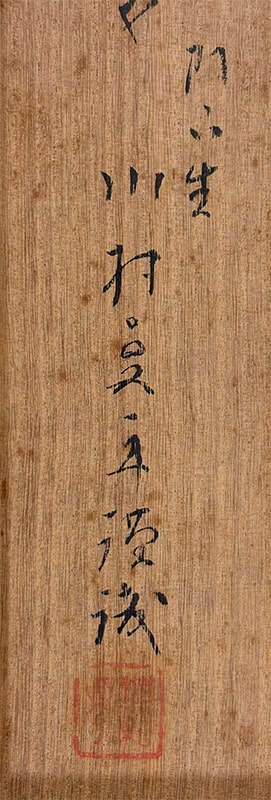 門下生
川村曼舟謹識